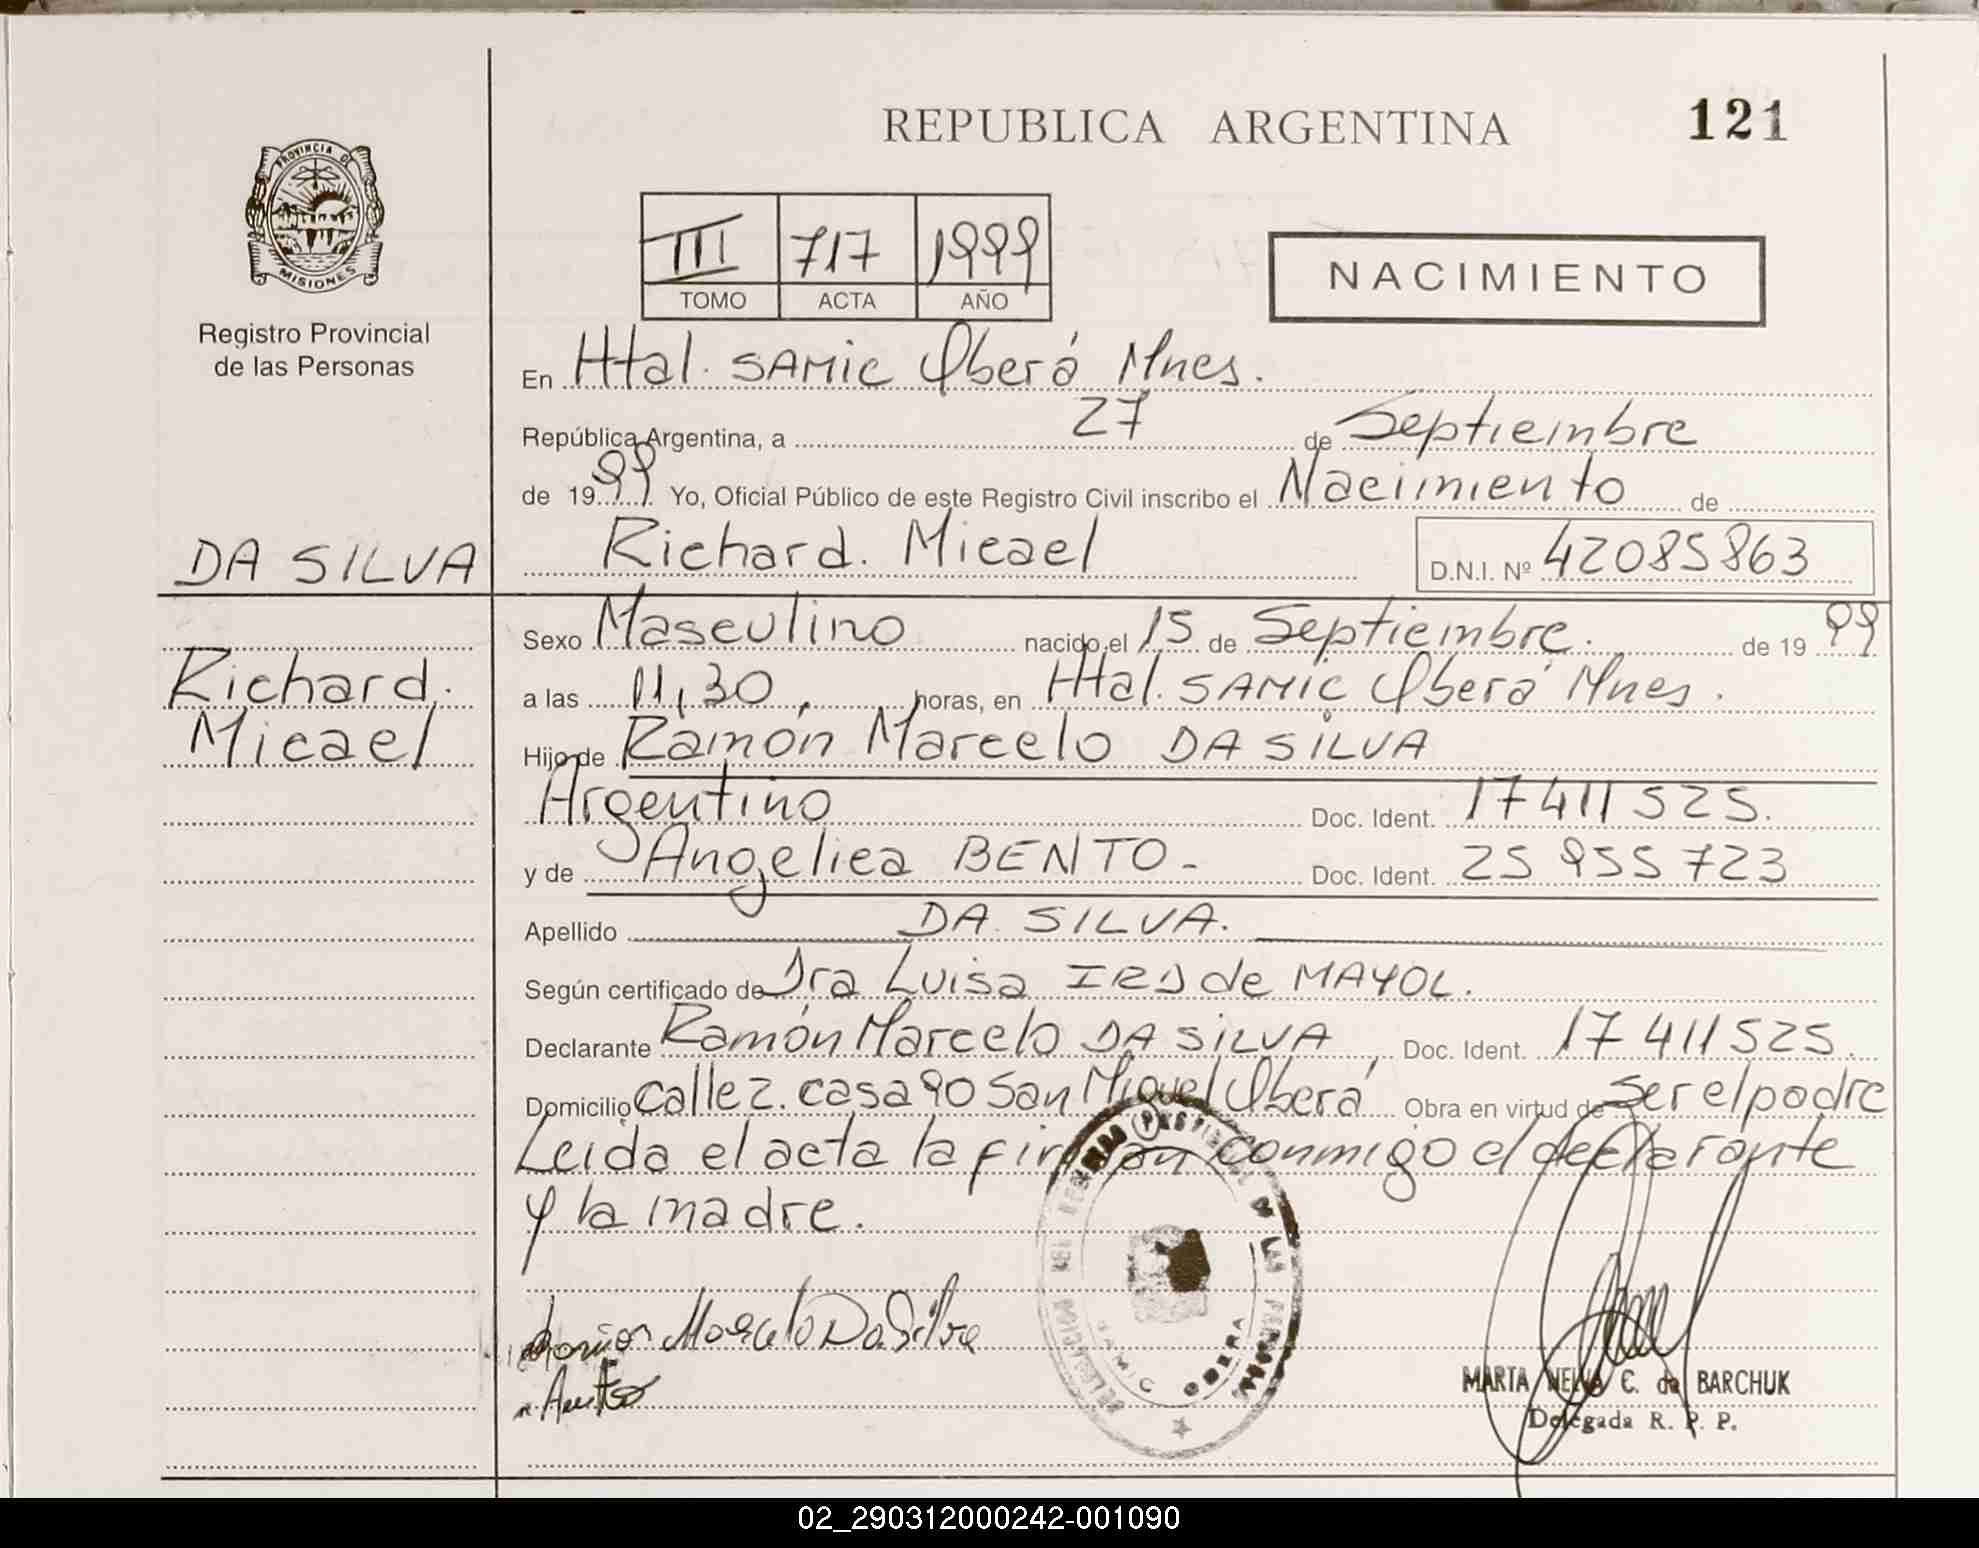 REPUBLICA ARGENTINA
121
PROVINCIA DE
MISIONES
Registro Provincial
de las Personas
III 717 1999
TOMO ACTA AÑO
NACIMIENTO
En Htal. SAMIC Oberá Mnes.
República Argentina, a 27 de Septiembre
de 1999 Yo, Oficial Público de este Registro Civil inscribo el Nacimiento de
Richard. Micael D.N.I. Nº 42085863
DA SILVA
Richard.
Micael
Sexo Masculino nacido el 15 de Septiembre. de 1999
a las 11,30, horas, en Htal. SAMIC Oberá Mnes.
Hijo de Ramón Marcelo DA SILVA
Argentino Doc. Ident. 17411525.
y de Angelica BENTO- Doc. Ident. 25955723
Apellido DA SILVA.
Según certificado de Dra Luisa de MAYOL.
Declarante Ramón Marcelo DA SILVA Doc. Ident. 17411525.
Domicilio calle 2. casa 90 San Miguel Oberá Obra en virtud de ser el padre
Leida el acta la firman conmigo el declarante
y la madre.
Ramon Marcelo Da Silva
SAMIC OBERA
MARTA C. de BARCHUK
Delegada R. P. P.
02_290312000242-001090